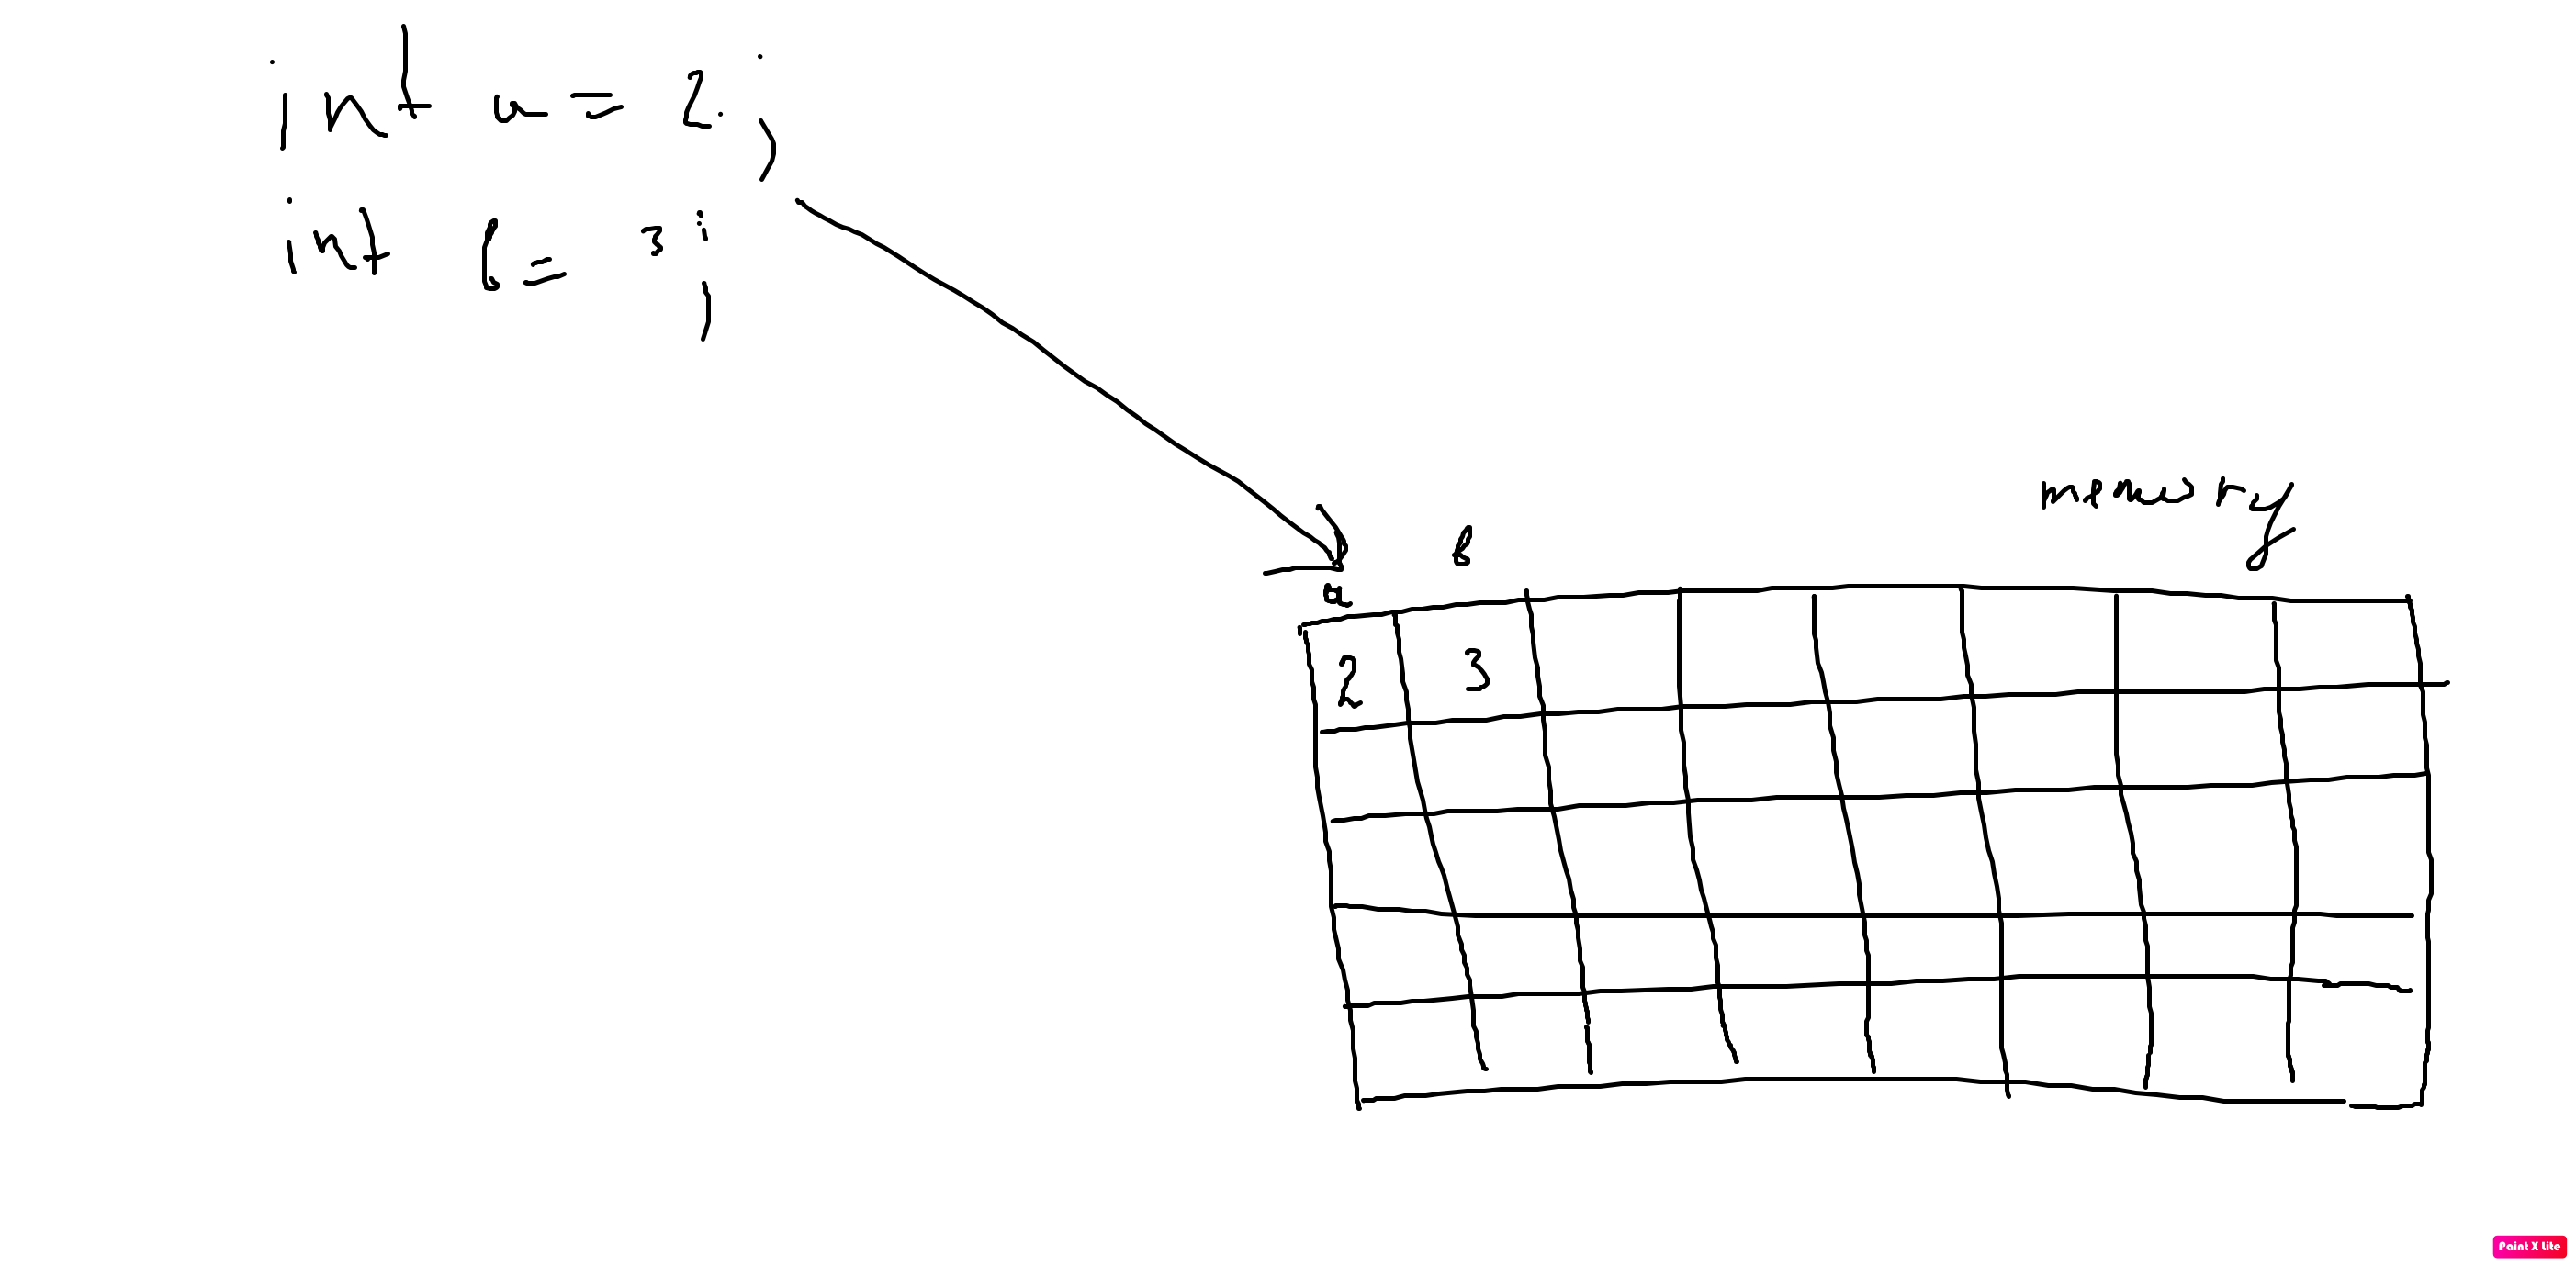 int a = 2;
int b = 3;
memory
b
a
2 3
Paint X Lite